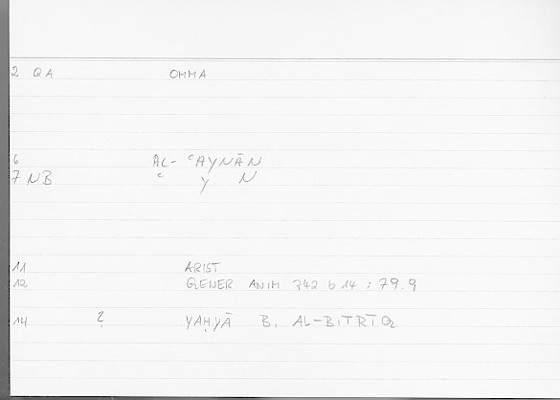 2 QA OMMA
6 AL-ʿAYNĀN
7 NB ʿ Y N
11 ARIST
12 GENER ANIM 742 b 14 : 79.9
14 ? YAḤYĀ B. AL-BIṬRĪQ